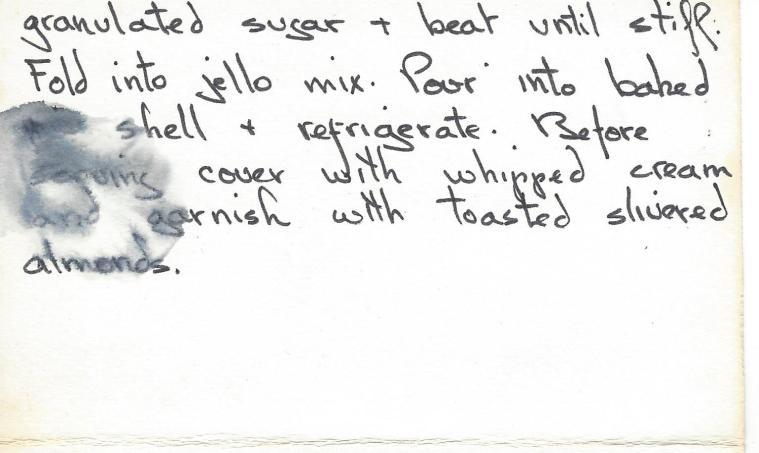 granulated sugar + beat until stiff.
Fold into jello mix. Pour into baked
shell + refrigerate. Before
serving cover with whipped cream
and garnish with toasted slivered
almonds.